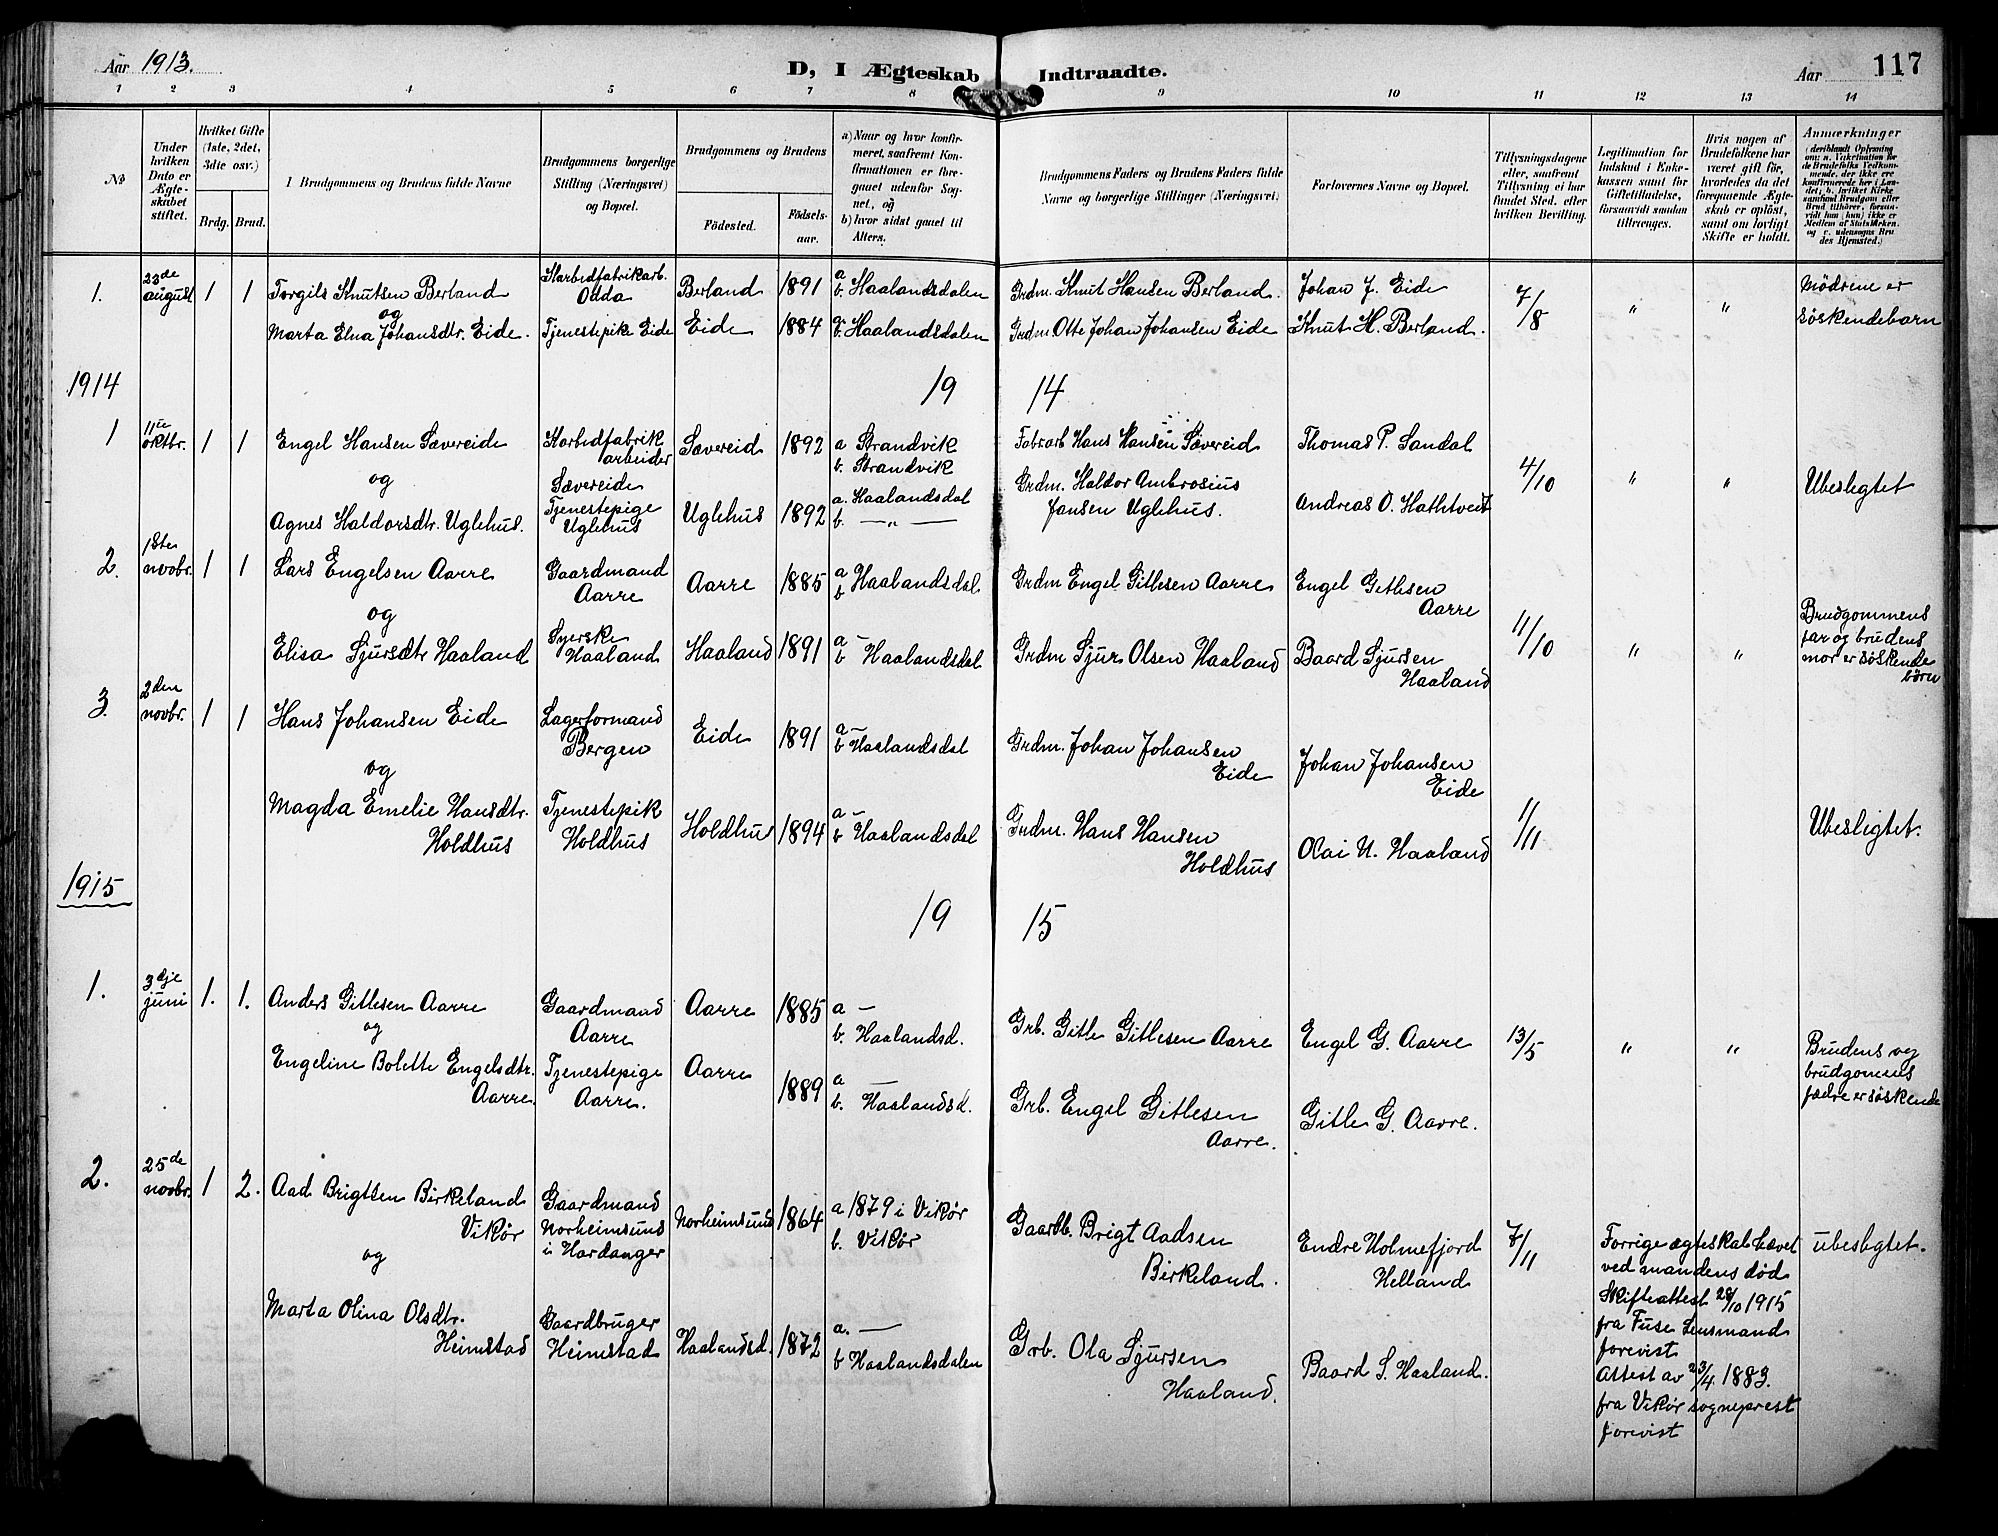 Aar 1913.
D, I Ægteskab Indtraadte.
Aar
117
1 2 3 4 5 6 7 8 9 10 11 12 13 14
No
Under hvilken Dato er Ægteskabet stiftet.
Hvilket Gifte (1ste, 2det, 3die osv.)
Brdg. Brud.
Brudgommens og Brudens fulde Navne
Brudgommens borgerlige Stilling (Næringsvei) og Bopæl.
Brudgommens og Brudens
Fødested.
Fødselsaar.
a) Naar og hvor konfirmeret, saafremt Konfirmationen er foregaaet udenfor Sognet, og
b) hvor sidst gaaet til Alters.
Brudgommens Faders og Brudens Faders fulde Navne og borgerlige Stillinger (Næringsvei)
Forlovernes Navne og Bopæl.
Tillysningsdagene eller, saafremt Tillysning ei har fundet Sted, efter hvilken Bevilling.
Legitimation for Indskud i Enkekassen samt for Giftetilladelse, forsaavidt saadan tiltrænges.
Hvis nogen af Brudefolkene har været gift før, hvorledes da det foregaaende Ægteskab er opløst, samt om lovligt Skifte er holdt.
Anmærkninger (deriblandt Oplysning om: a. Vaksination for de Brudefolks Vedkommende, der ikke ere konfirmerede her i Landet; b. hvilket Kirkesamfund Brudgom eller Brud tilhører, forsaavidt han (hun) ikke er Medlem af Statskirken, og c. udensogns Brudes Hjemsted.)
1. 23de august 1 1 Torgils Knutsen Berland Karbidfabrikarb. Odda Berland 1891 a b. Haalandsdalen Grdm. Knut Hansen Berland. Johan J. Eide 7/8 " " Mødrene er søskendebarn
og
Marta Elna Johansdtr. Eide. Tjenestepike Eide Eide 1884 a b. Haalandsdalen Grdm. Otte Johan Johansen Eide Knut H. Berland.
1914 19 14
1 11te oktbr. 1 1 Engel Hansen Sævereide Karbidfabrik arbeider Sævereide Sævereid 1892 a Strandvik b. Strandvik Fabrarb Hans Hansen Sævereid Thomas P. Sandal 4/10 " " Ubesligtet
og
Agnes Haldorsdtr. Uglehus. Tjenestepige Uglehus Uglehus 1892 a. Haalandsdal b. —"— Grdm. Haldor Ambrosius Jansen Uglehus. Andreas O. Hathtveit
2. 18ten novbr. 1 1 Lars Engelsen Aarre Gaardmand Aarre Aarre 1885 a b Haalandsdal Grdm Engel Gitlesen Aarre Engel Gitlesen Aarre 11/10 " " Brudgommens far og brudens mor er søskende børn
og
Elisa Sjursdtr Haaland Syerske Haaland Haaland 1891 a – b Haalandsdal Grdm Sjur Olsen Haaland Baard Sjursen Haaland
3. 2den novbr. 1 1 Hans Johansen Eide Lagerformand Bergen Eide 1891 a – b Haalandsdal Grdm. Johan Johansen Eide Johan Johansen Eide 1/11 Ubesligtet.
og
Magda Emelie Hansdtr. Holdhus Tjenestepik Holdhus Holdhus 1894 a – b Haalandsdal Grdm. Hans Hansen Holdhus Olai N. Haaland
1915 19 15
1. 3dje juni 1. 1. Anders Gitlesen Aarre Gaardmand Aarre Aarre 1885 a – b. Haalandsd. Grb. Gitle Gitlesen Aarre Engel G. Aarre 13/5 " " Brudens og brudgomens fædre er søskende
og
Engeline Bolette Engelsdtr. Aarre. Tjenestepige Aarre. Aarre 1889 a – b. Haalandsd. Grb. Engel Gitlesen Aarre. Gitle G. Aarre.
2. 25de novbr. 1 2. Aad Brigtsen Birkeland Vikør Gaardmand Norheimsund i Hardanger Norheimsund 1864 a 1879 i Vikør b. Vikør Gaardb. Brigt Aadsen Birkeland. Endre Holmefjord Helland 7/11 Forrige ægteskab hævet ved mandens død Skifteattest 28/10 1915 fra Fuse Lensmand forevist Attest av 23/4 1883. fra Vikør sogneprest forevist ubesligtet.
og
Marta Olina Olsdtr. Heimstad Gaardbruger Heimstad Haalandsd. 1872 a. – b Haalandsdalen Grb. Ola Sjursen Haaland. Baard S. Haaland.